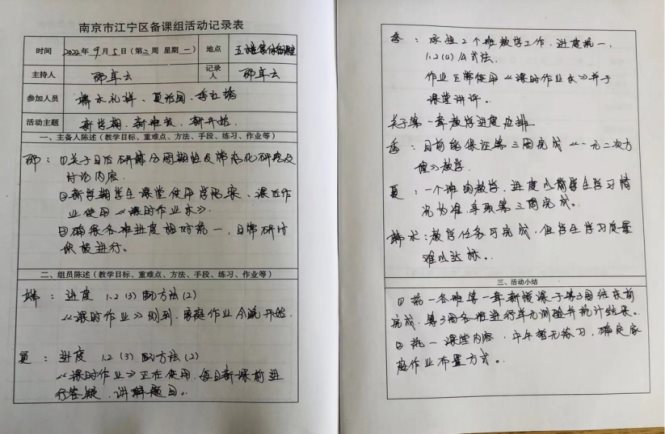 南京市江宁区备课组活动记录表
时间 2022年9月5日(第二周 星期一) 地点
主持人 邵年云 记录人 邵年云
参加人员 端木礼祥、夏
活动主题 新学期、新 新开始
一、主备人陈述(教学目标、重难点、方法、手段、练习、作业等)
邵:①关于日后研 周期性及常态化研 及
讨论内容.
②新学期学生课堂使用学 案,课后作
业使用《课时作业本》.
③确保各班进度 统一,日常研讨
积极进行.
二、组员陈述(教学目标、重难点、方法、手段、练习、作业等)
端: 进度 1.2(3)配方法(2)
《课时作业》刚到,家庭作业今晚开始.
夏: 进度 1.2(3)配方法(2)
《课时作业》正在使用,每日新课前进
行答疑,讲解题目.
李: 承担2个班教学工作,进度统一,
1.2(2)公式法,
作业正常使用《课时作业本》并于
课堂讲评.
关于第一章教学进度安排.
李: 目前能保证第三周完成《一元二次方
程》教学.
夏: 一个班的教学,进度 学生学习情
况为准,争取第三周完成.
端木:教学任务可完成,但学生学习质量
难以达标.
三、活动小结
①统一各班第一章新授课于第3周结束前
完成,第3周各班进行单元测验并统计结果.
②统一课堂内容,中午 练习,确定家
庭作业布置方式.